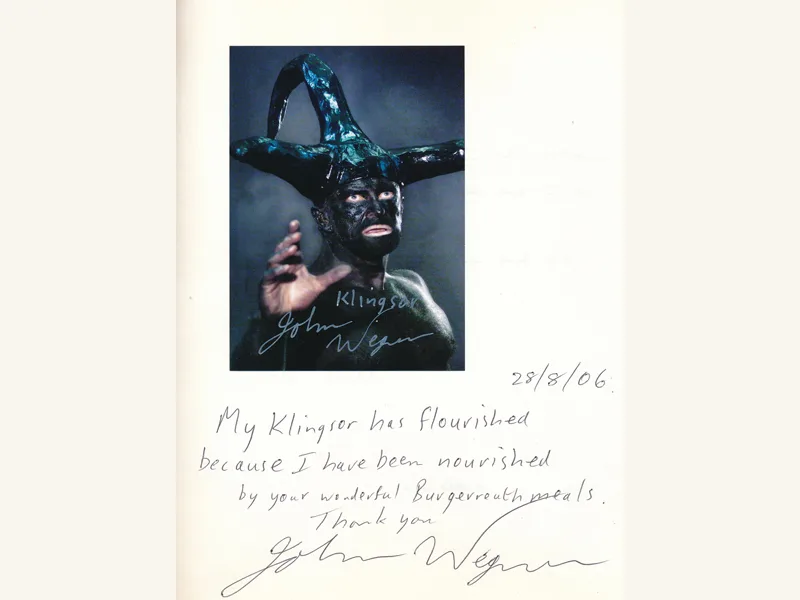 Klingsor
John Wegner
28/8/06.
My Klingsor has flourished
because I have been nourished
by your wonderful Burgerreuth meals.
Thank you
John Wegner